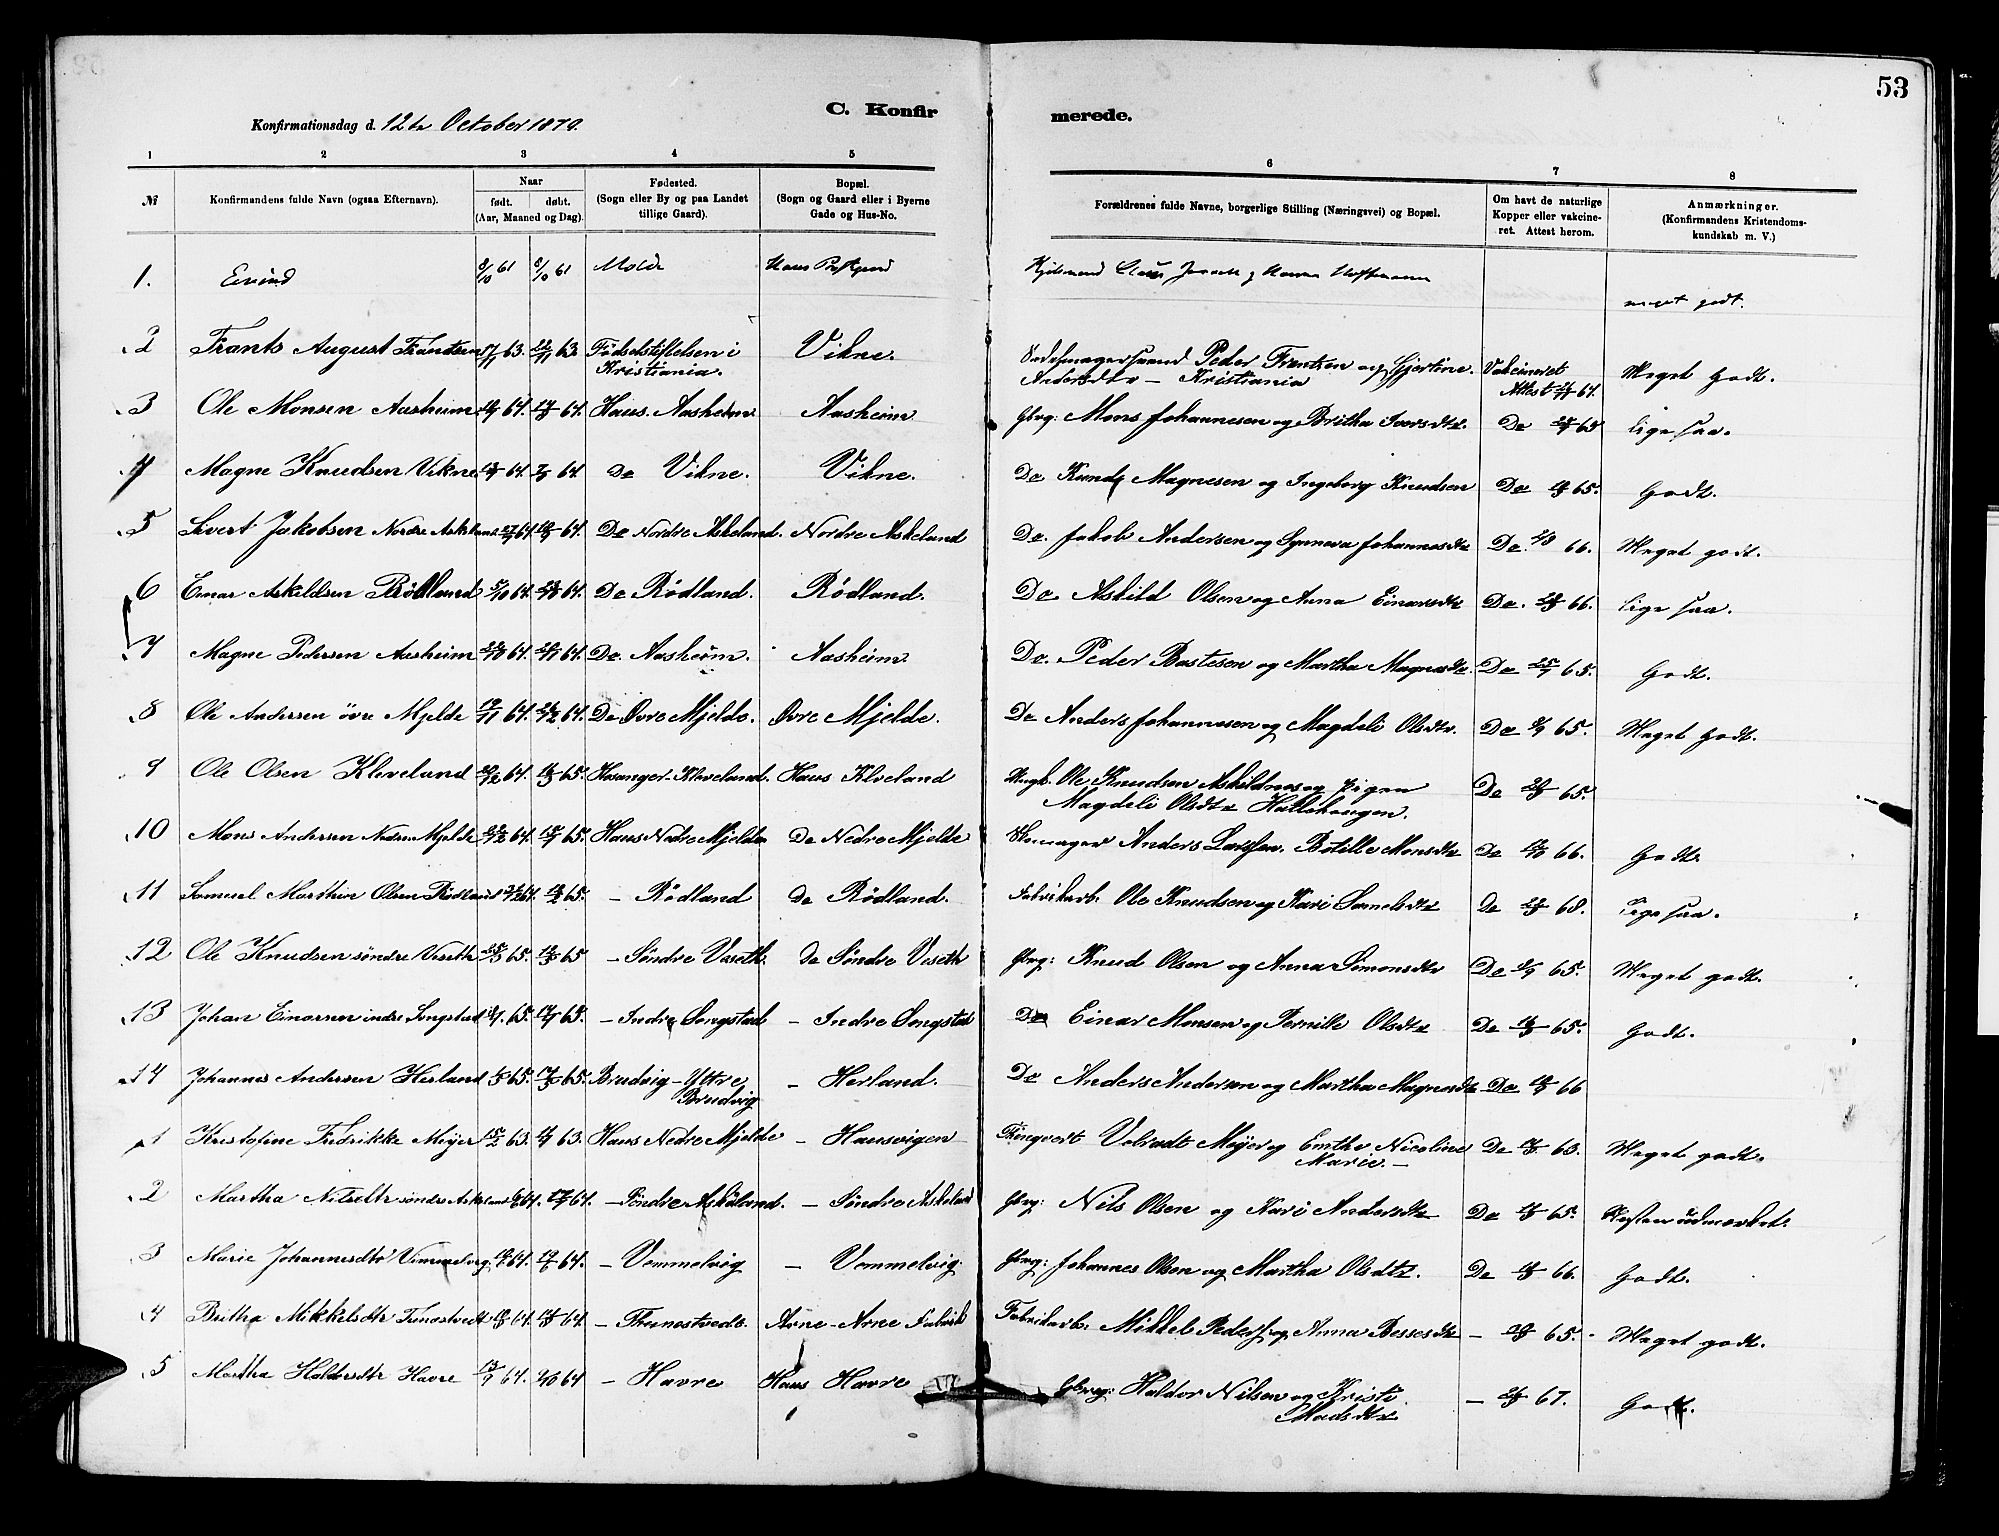 53
C. Konfirmerede.
Konfirmationsdag d. 12te October 1879.
1 2 3 4 5 6 7 8
№ Konfirmandens fulde Navn (ogsaa Efternavn). Naar født. døbt. (Aar, Maaned og Dag). Fødested. (Sogn eller By og paa Landet tillige Gaard). Bopæl. (Sogn og Gaard eller i Byerne Gade og Hus-No. Forældrenes fulde Navne, borgerlige Stilling (Næringsvei) og Bopæl. Om havt de naturlige Kopper eller vakcineret. Attest herom. Anmærkninger. (Konfirmandens Kristendomskundskab m. V.)
1. Eivind 8/10 61 Molde Haus meget godt.
2 Frants August Frandsen 63. 63. Fødselstiftelsen i Kristiania. Vikne. Peder Frentzen og Gjertine Andersdtr – Kristiania Vakcineret Attest 64. Meget godt.
3 Ole Monsen Aasheim 64. 64. Haus. Aasheim Aasheim Gbrg: Mons Johannesen og Britha Iversdtr. Do 65 lige saa.
4 Magne Knudsen Vikne 64. 64. Do Vikne. Vikne. Do Knud Magnesen og Ingeborg Knudsen Do 65. Godt.
5 Sivert Jakobsen Nordre Askeland 64. 64. Do Nordre Askeland. Nordre Askeland Do. Jakob Andersen og Synneva Johannesdtr Do. 66. Meget godt.
6 Einar Askeldsen Rødland 5/10 64. 64. Do Rödland. Rödland. Do Askild Olsen og Anna Einarsdtr Do. 66. lige saa.
7 Magne Pedersen Aasheim 64. 64. Do. Aasheim. Aasheim Do. Peder Bastesen og Martha Magnesdtr. Do 65. Godt.
8 Ole Andersen övre Mjelde 64. 64. Do Øvre Mjelde. Øvre Mjelde. Do Anders Johannesen og Magdeli Olsdtr. Do 65. Meget Godt.
9 Ole Olsen Kleveland 64. 65. Hosanger. Kleveland. Haus Kleveland Ole Knudsen Askildnes og pigen Magdeli Olsdtr Hallehaugen. Do 65.
10 Mons Andersen Nedre Mjelde 64. 65. Haus Nedre Mjelde Do Nedre Mjelde Skomager Anders Larsen. Botille Monsdtr Do 66. Godt.
11 Samuel Marthin Olsen Rødland 64. 65. – Rödland do Rödland. Fabrikarb. Ole Knudsen og Kari Samelsdtr Do 68. Lige saa.
12 Ole Knudsen søndre Veseth 65. 65 – Söndre Veseth. do Söndre Veseth Gbrg: Knud Olsen og Anna Simonsdtr Do 65. Meget godt.
13 Johan Einarsen indre Songstad 65. 65. – Indre Songstad – Indre Songstad Do Einar Monsen og Pernille Olsdtr Do 65. Godt.
14 Johannes Andersen Herland 65. 65. Brudvig – Yttre Brudvig – Herland. Do Anders Andersen og Martha Magnesdtr Do 66
1 Kristofine Fredrikke Meyer 63. 63. Haus Nedre Mjelde – Hausvigen Volradt Meyer og Emthe Nicoline Marie. – Do 63. Meget godt.
2 Martha Nilsdtr søndre Askeland 64. 64. – Söndre Askeland. – Söndre Askeland Gbrg: Nils Olsen og Kari Andersdtr Do 65. Næsten udmærket.
3 Marie Johannesdtr Vommelvig 64. 64. – Vommelvig – Vommelvig Gbrg: Johannes Olsen og Martha Olsdtr. Do 66. Godt.
4 Britha Mikkelsdtr Tunestvedt 64. 64. – Thunestvedt. Arne – Arne Fabrik Fabrikarb. Mikkel Peders. og Anna Bessesdtr – 65. Meget godt.
5 Martha Haldorsdtr Havre 13/9 64. 64 – Havre Haus Havre Gbrg: Haldor Nilsen og Kristi Madsdtr – 67. Godt.